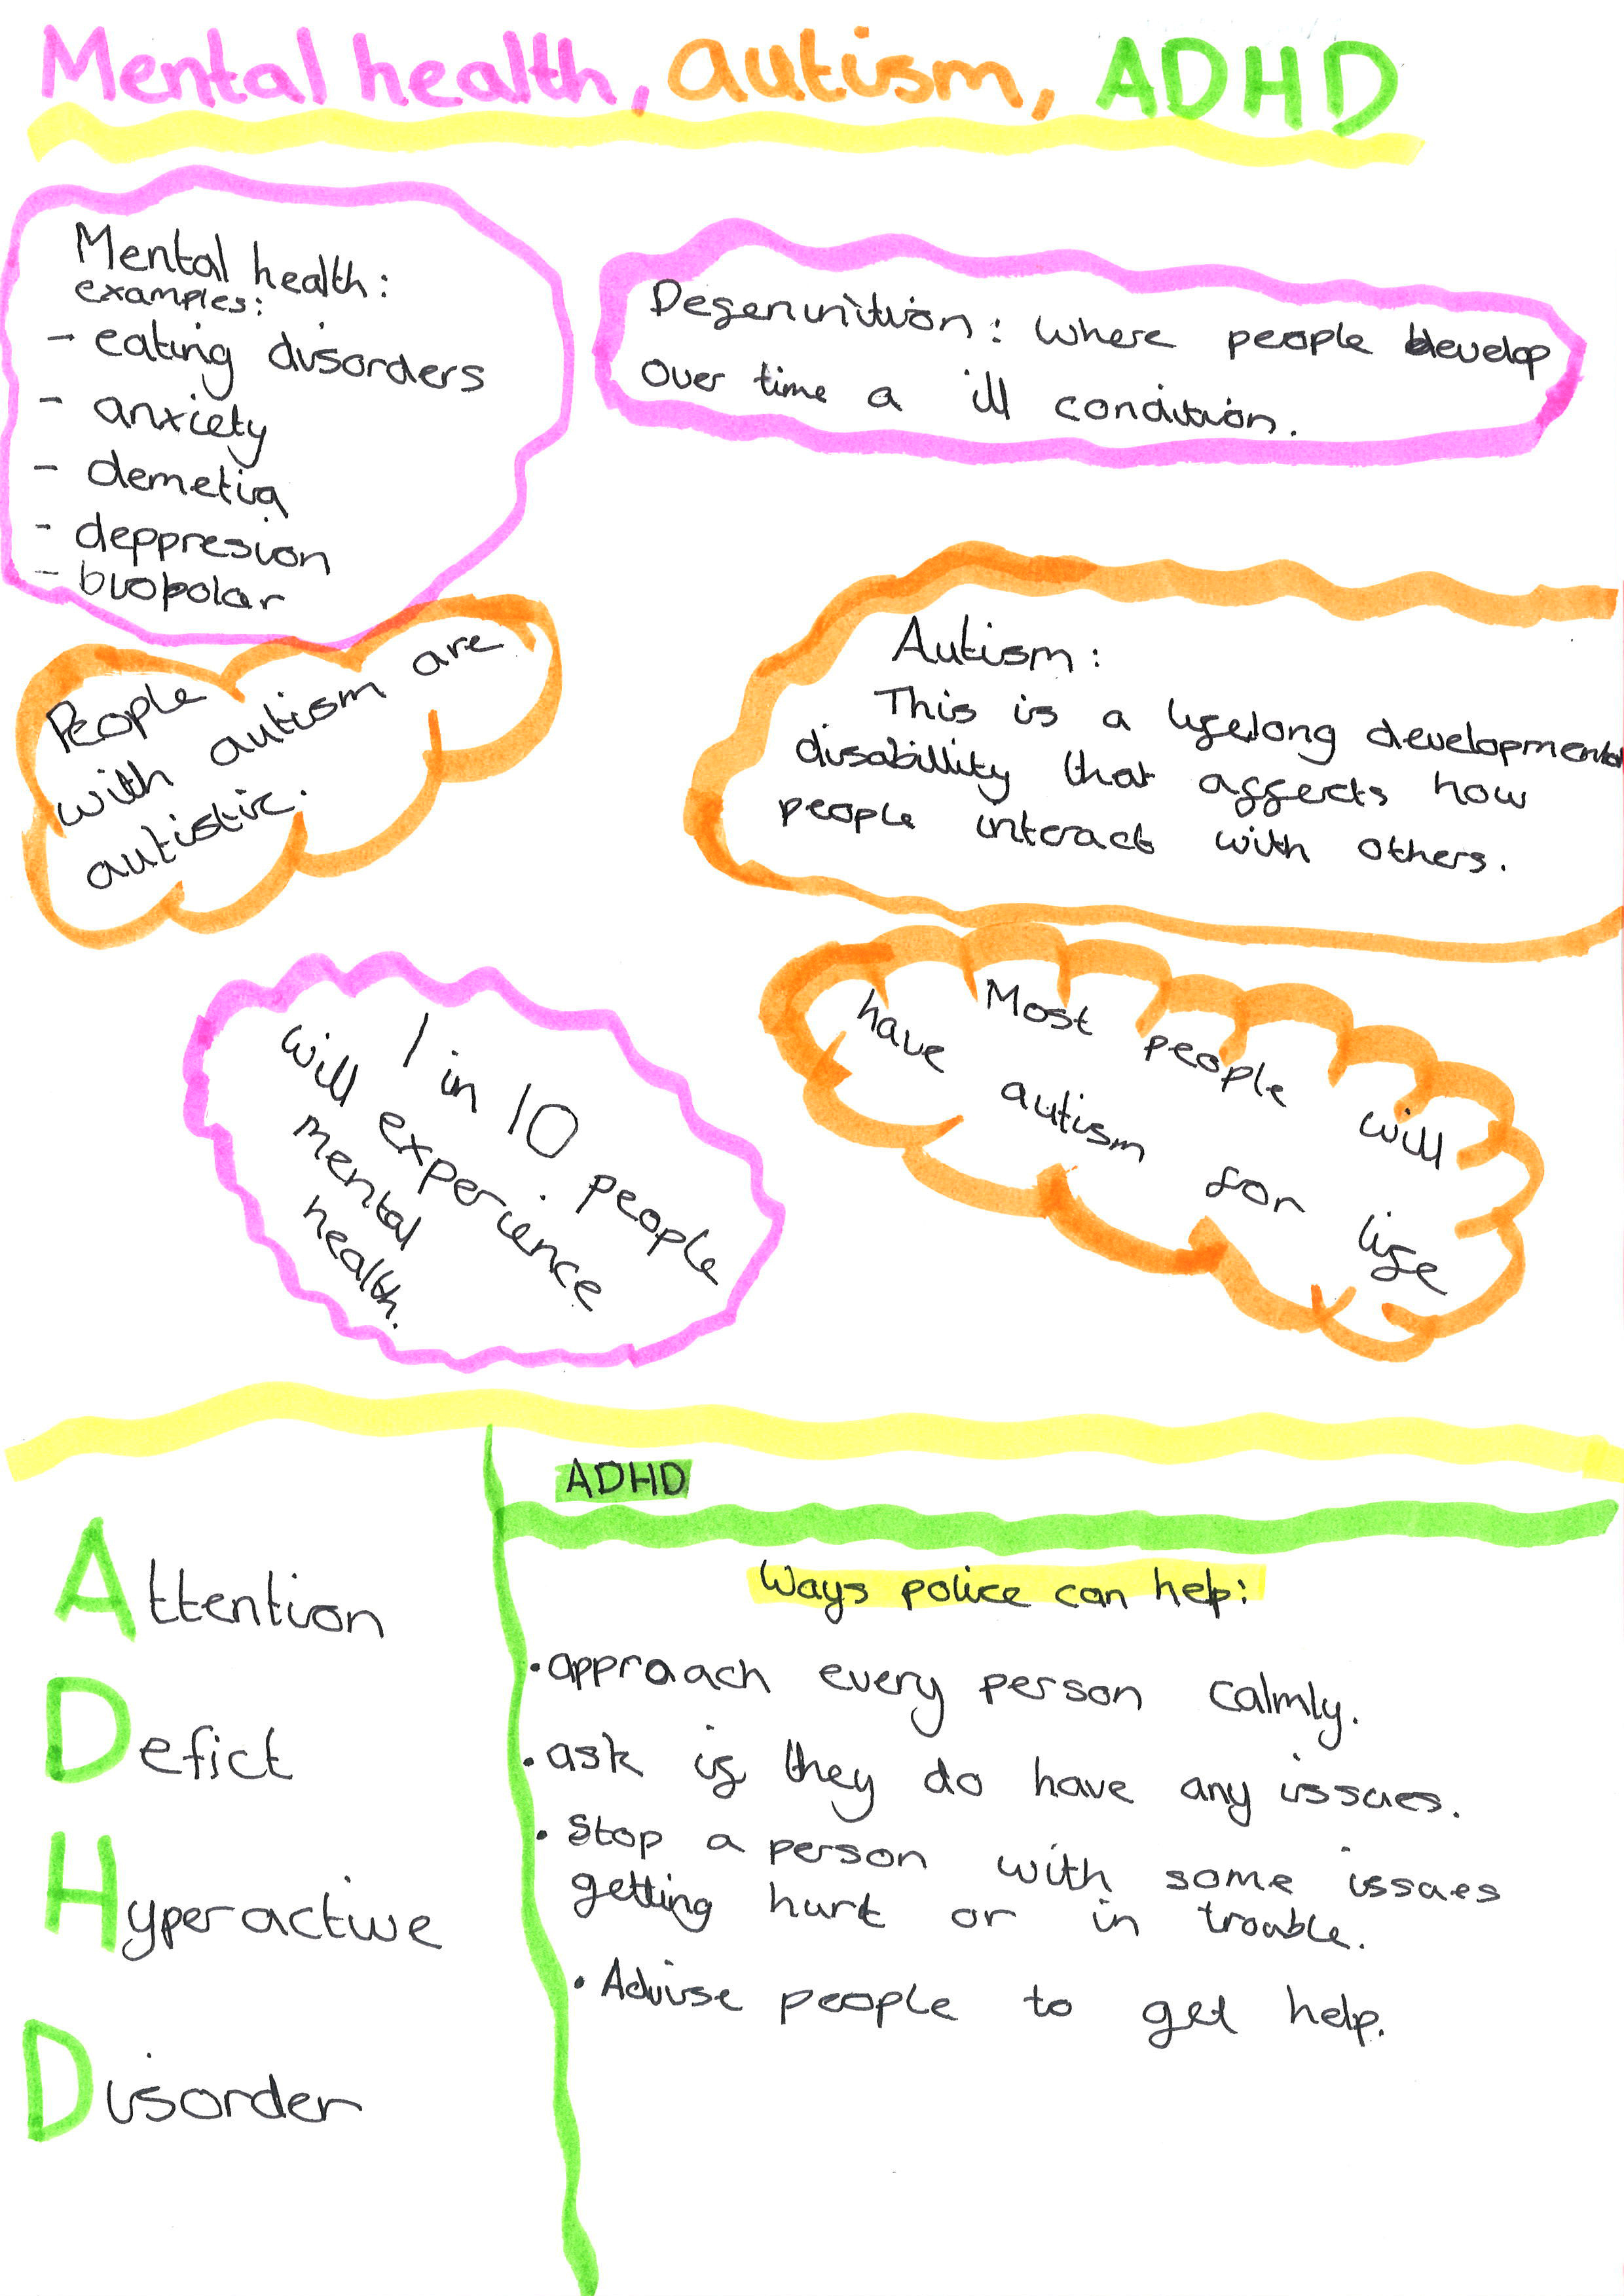 Mental health, autism, ADHD
Mental health:
examples:
- eating disorders
- anxiety
- demetia
- deppresion
- biopolar
Defenintion: where people develop
over time a ill condition.
People
with autism are
autistic.
Autism:
This is a lifelong developmental
disabillity that affects how
people interact with others.
1 in 10 people
will experience
mental
health.
Most people will
have autism for life
Attention
Defict
Hyperactive
Disorder
ADHD
Ways police can help:
• appraach every person calmly.
• ask if they do have any issues.
• Stop a person with some issues
getting hurt or in trouble.
• Advise people to get help.